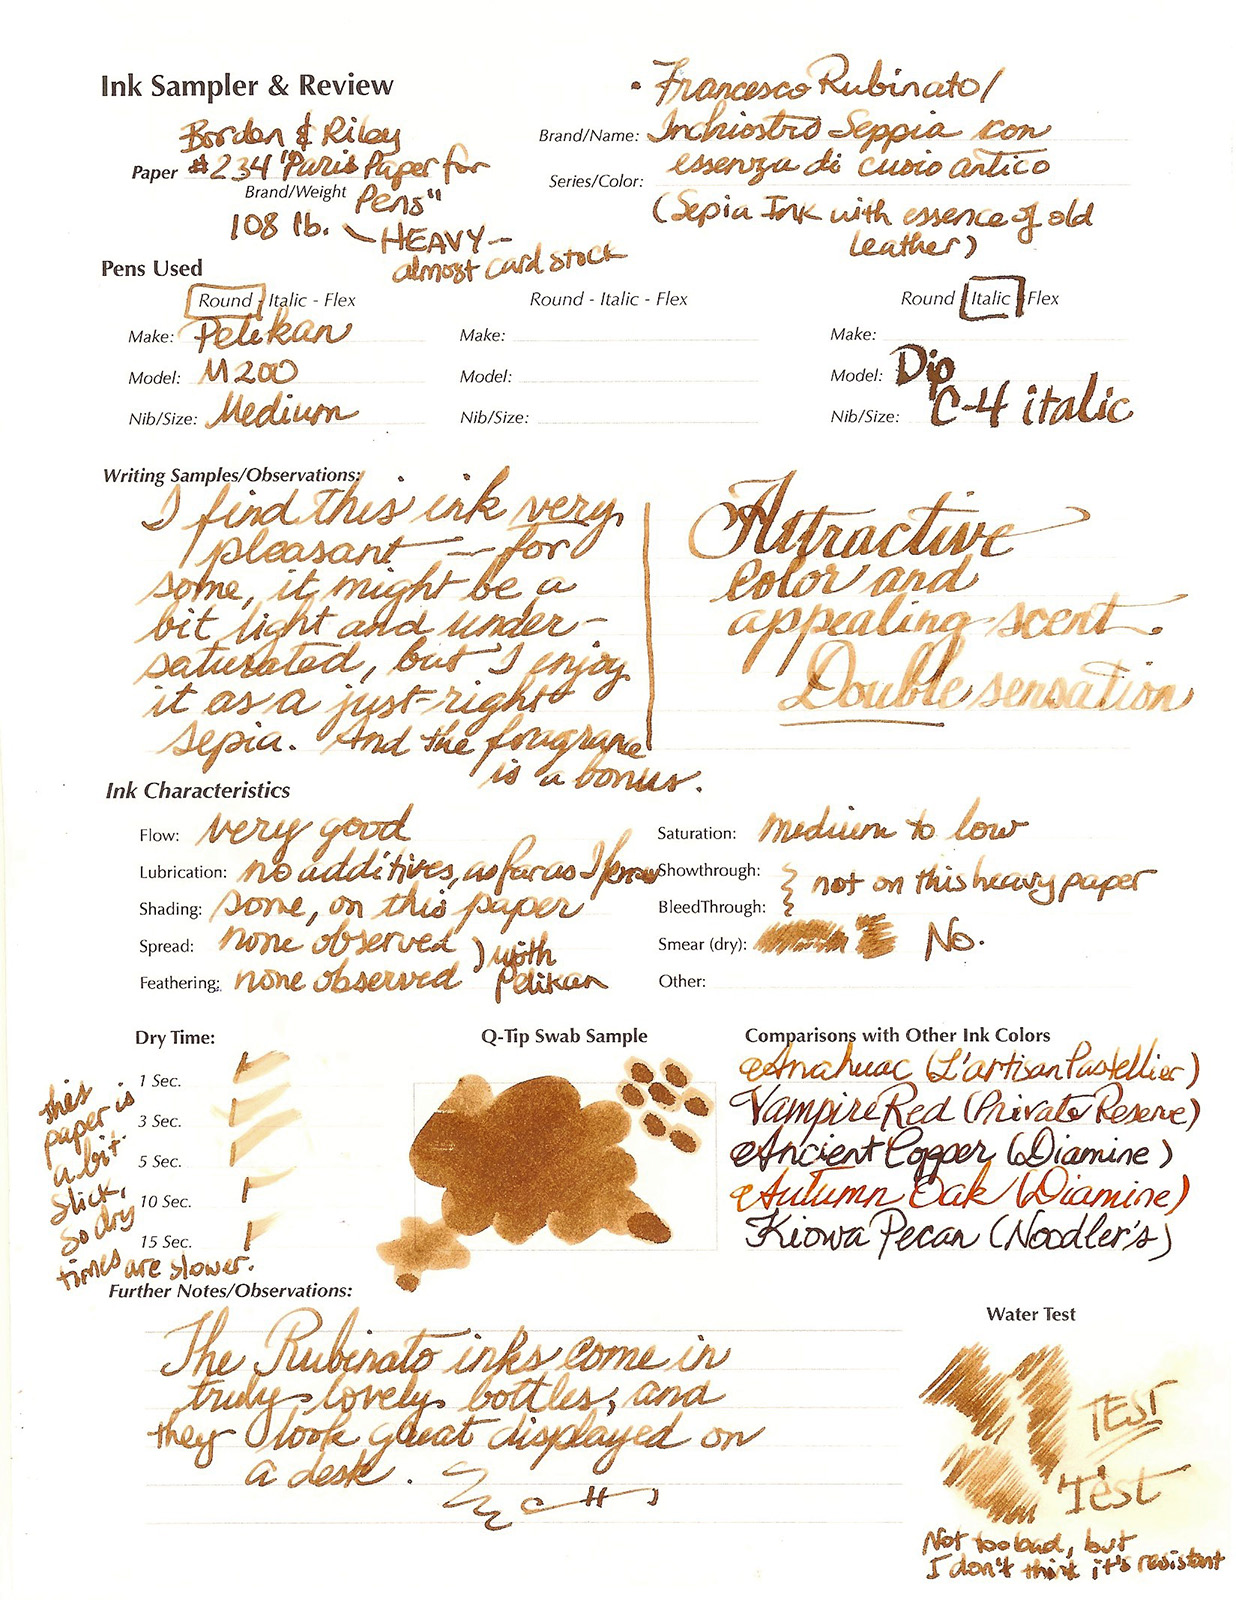 Ink Sampler & Review
• Francesco Rubinato/
Borden & Riley
Brand/Name: Inchiostro Seppia con
Paper #234 "Paris Paper for
essenza di cuoio antico
Brand/Weight Pens"
Series/Color:
108 lb. - HEAVY -
(Sepia Ink with essence of old
leather)
almost card stock
Pens Used
Round - Italic - Flex
Round - Italic - Flex
Round - Italic - Flex
Make: Pelikan
Make:
Make:
Model: M200
Model:
Model: Dip
Nib/Size: Medium
Nib/Size:
Nib/Size: C-4 italic
Writing Samples/Observations:
I find this ink very
pleasant — for
some, it might be a
bit light and under-
saturated, but I enjoy
it as a just-right
sepia. And the fragrance
is a bonus.
Attractive
color and
appealing scent.
Double sensation
Ink Characteristics
Flow: very good
Saturation: medium to low
Lubrication: no additives, as far as I know
Showthrough:
not on this heavy paper
Shading: some, on this paper
BleedThrough:
Spread: none observed
) with
Smear (dry): No.
Feathering: none observed
Pelikan
Other:
Dry Time:
1 Sec.
3 Sec.
5 Sec.
10 Sec.
15 Sec.
this
paper is
a bit
slick,
so dry
times are slower.
Q-Tip Swab Sample
Comparisons with Other Ink Colors
Anahuac (L'artisan Pastellier)
Vampire Red (Private Reserve)
Ancient Copper (Diamine)
Autumn Oak (Diamine)
Kiowa Pecan (Noodler's)
Further Notes/Observations:
The Rubinato inks come in
truly lovely bottles, and
they look great displayed on
a desk.
Water Test
TEST
Test
Not too bad, but
I don't think it's resistant